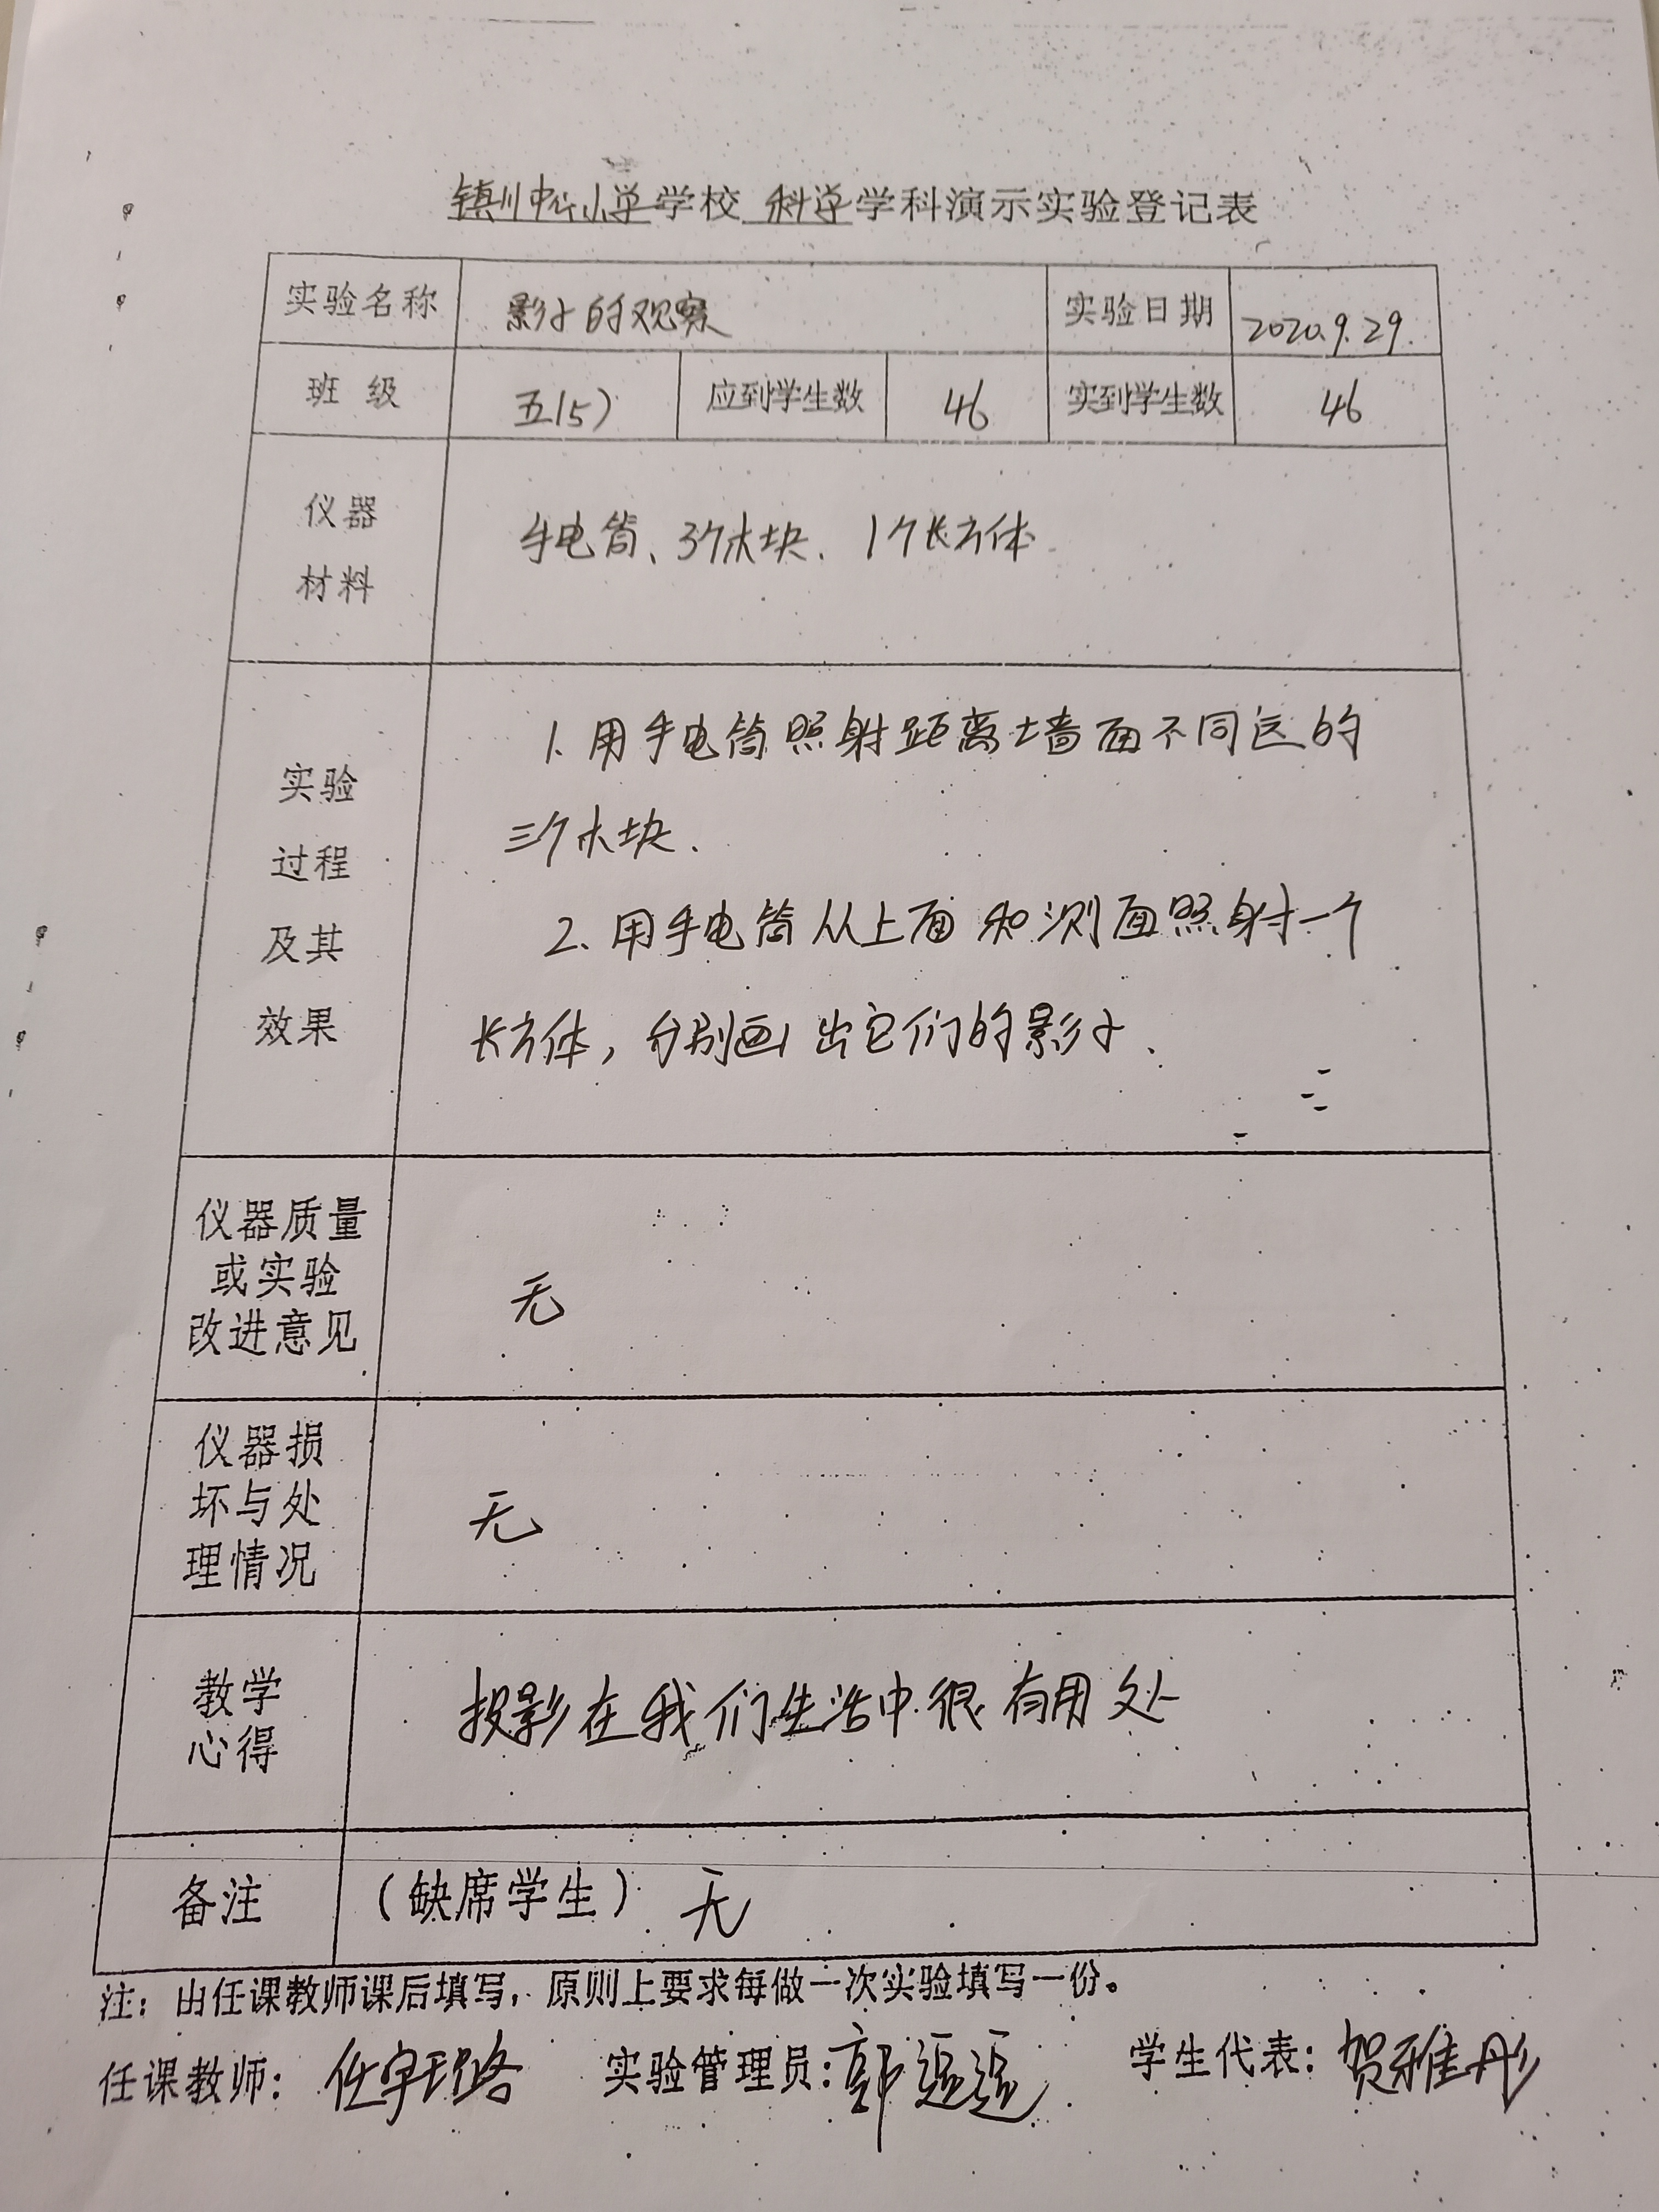 镇川中心小学学校 科学学科演示实验登记表
实验名称 影子的观察 实验日期 2020.9.29.
班 级 五(5) 应到学生数 46 实到学生数 46
仪器
材料
手电筒、3个木块、1个长方体
实验
过程
及其
效果
1.用手电筒照射距离墙面不同远的
三个木块.
2.用手电筒从上面和测面照射一个
长方体,分别画出它们的影子.
仪器质量
或实验
改进意见
无
仪器损
坏与处
理情况
无
教学
心得
投影在我们生活中很有用处
备注 (缺席学生) 无
注:由任课教师课后填写,原则上要求每做一次实验填写一份。
任课教师: 任宇璐 实验管理员: 学生代表:贺雅彤